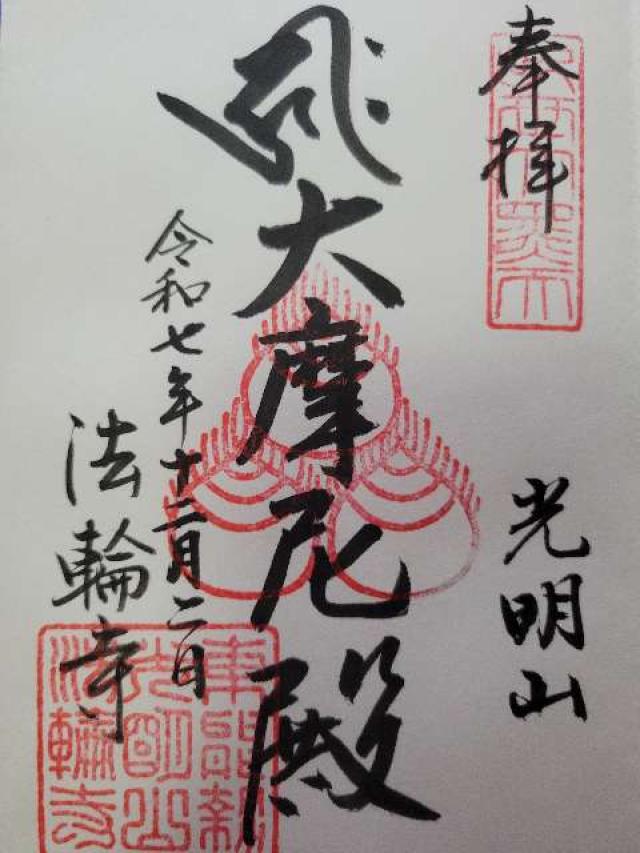 奉拝
光明山
大摩尼殿
令和七年十二月二日
法輪寺